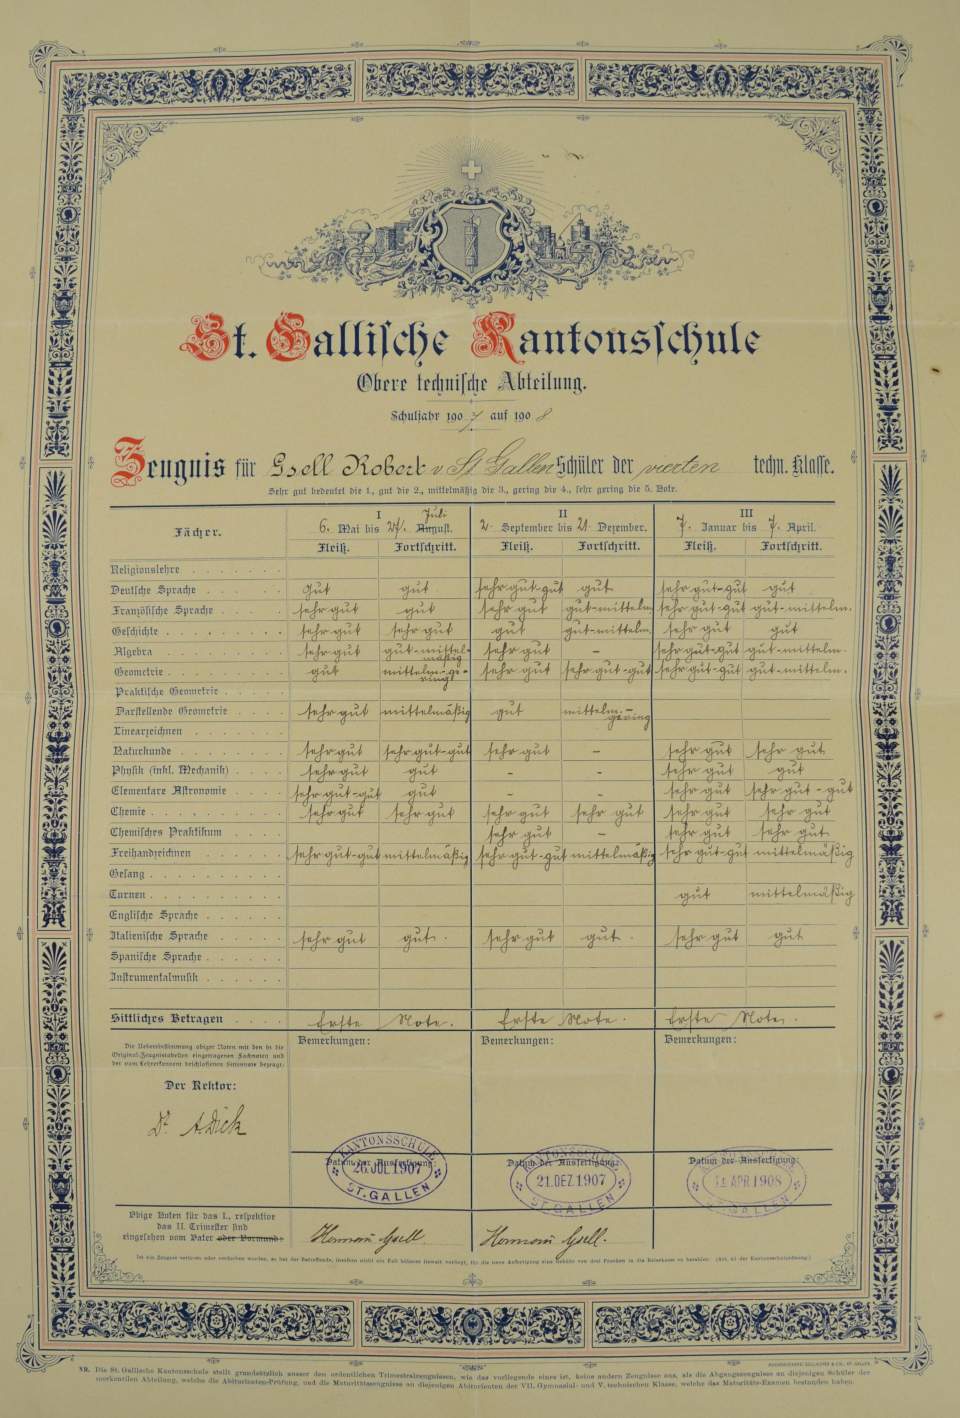 St. Gallische Kantonsschule
Obere technische Abteilung.
Schuljahr 1907 auf 1908
Zeugnis für Gsell Robert v. St. Gallen Schüler der vierten techn. Klasse.
Sehr gut bedeutet die 1., gut die 2., mittelmäßig die 3., gering die 4., sehr gering die 5. Note.
Fächer. I II III
Juli
6. Mai bis 27. August. 2. September bis 21. Dezember. 7. Januar bis 7. April.
Fleiß. Fortschritt. Fleiß. Fortschritt. Fleiß. Fortschritt.
Religionslehre
Deutsche Sprache gut gut sehr gut-gut gut sehr gut-gut gut
Französische Sprache sehr gut gut sehr gut gut-mittelm. sehr gut-gut gut-mittelm.
Geschichte sehr gut sehr gut gut gut-mittelm. sehr gut gut
Algebra sehr gut gut-mittelmäßig sehr gut – sehr gut-gut gut-mittelm.
Geometrie gut mittelm.-gering sehr gut sehr gut-gut sehr gut-gut gut-mittelm.
Praktische Geometrie
Darstellende Geometrie sehr gut mittelmäßig gut mittelm.-gering
Linearzeichnen
Naturkunde sehr gut sehr gut-gut sehr gut – sehr gut sehr gut
Physik (inkl. Mechanik) sehr gut gut – – sehr gut gut
Elementare Astronomie sehr gut-gut gut – – sehr gut sehr gut-gut
Chemie sehr gut sehr gut sehr gut sehr gut sehr gut sehr gut
Chemisches Praktikum sehr gut – sehr gut sehr gut
Freihandzeichnen sehr gut-gut mittelmäßig sehr gut-gut mittelmäßig sehr gut-gut mittelmäßig
Gesang
Turnen gut mittelmäßig
Englische Sprache
Italienische Sprache sehr gut gut. sehr gut gut. sehr gut gut
Spanische Sprache
Instrumentalmusik
Sittliches Betragen Erste Note. Erste Note. Erste Note.
Die Uebereinstimmung obiger Noten mit den in die
Original-Zeugnistabellen eingetragenen Fachnoten und
der vom Lehrerkonvent beschlossenen Sittennote bezeugt:
Bemerkungen: Bemerkungen: Bemerkungen:
Der Rektor:
Dr. A. Dick
KANTONSSCHULE KANTONSSCHULE KANTONSSCHULE
Datum der Ausfertigung: Datum der Ausfertigung: Datum der Ausfertigung:
26. JUL 1907 21. DEZ. 1907 APR 1908
ST. GALLEN ST. GALLEN ST. GALLEN
Obige Noten für das I., respektive
das II. Trimester sind
eingesehen vom Vater oder Vormund:
Hermann Gsell. Hermann Gsell.
NB. Die St. Gallische Kantonsschule stellt grundsätzlich ausser den ordentlichen Trimestralzeugnissen, wie das vorliegende eines ist, keine andern Zeugnisse aus, als die Abgangszeugnisse an diejenigen Schüler der
merkantilen Abteilung, welche die Abiturienten-Prüfung, und die Maturitätszeugnisse an diejenigen Abiturienten der VII. Gymnasial- und V. technischen Klasse, welche das Maturitäts-Examen bestanden haben.